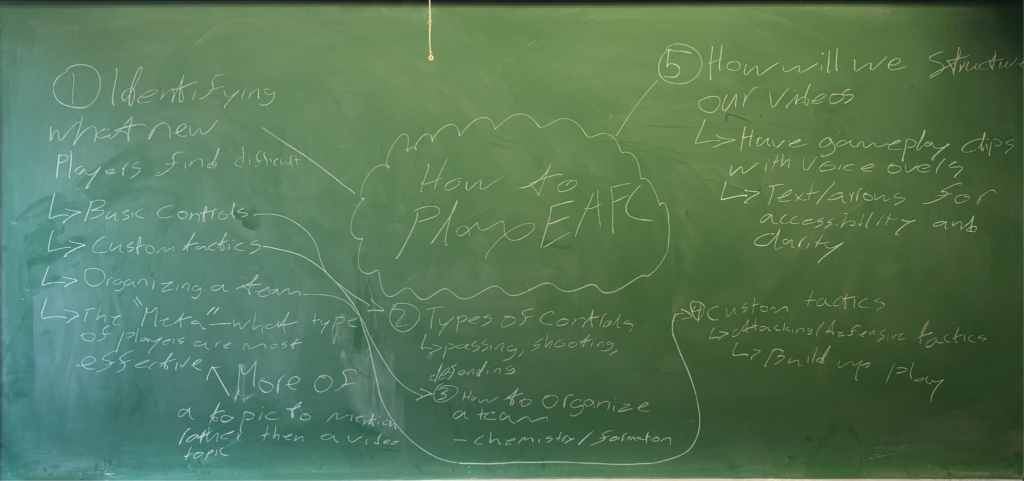 ① Identifying
what new
Players find difficult
↳ Basic Controls
↳ Custom tactics
↳ Organizing a team
↳ The "Meta" – what type
of players are most
effective
More of
a topic to mention
rather then a video
topic
How to
Play EAFC
② Types of Controls
↳ passing, shooting,
defending
③ How to Organize
a team
– chemistry/formation
④ Custom tactics
↳ Attacking/defensive tactics
↳ Build up play
⑤ How will we structure
our videos
↳ Have gameplay clips
with voice overs
↳ Text/arrows for
accessibility and
clarity